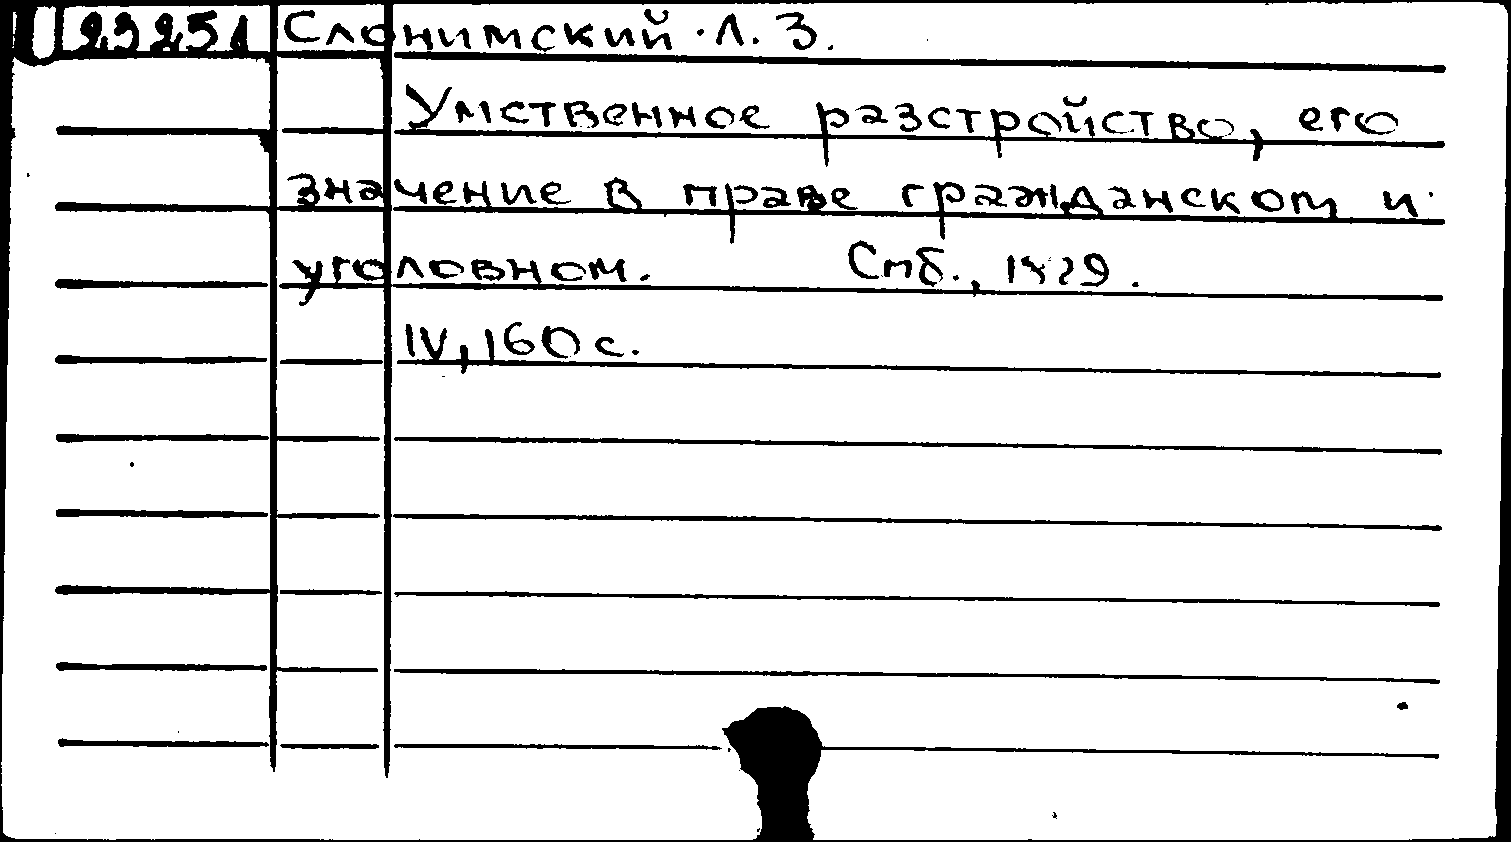 23251 Слонимский Л. З.
Умственное разстройство, его
значение в праве гражданском и
уголовном. Спб., 1879.
IV, 160 с.